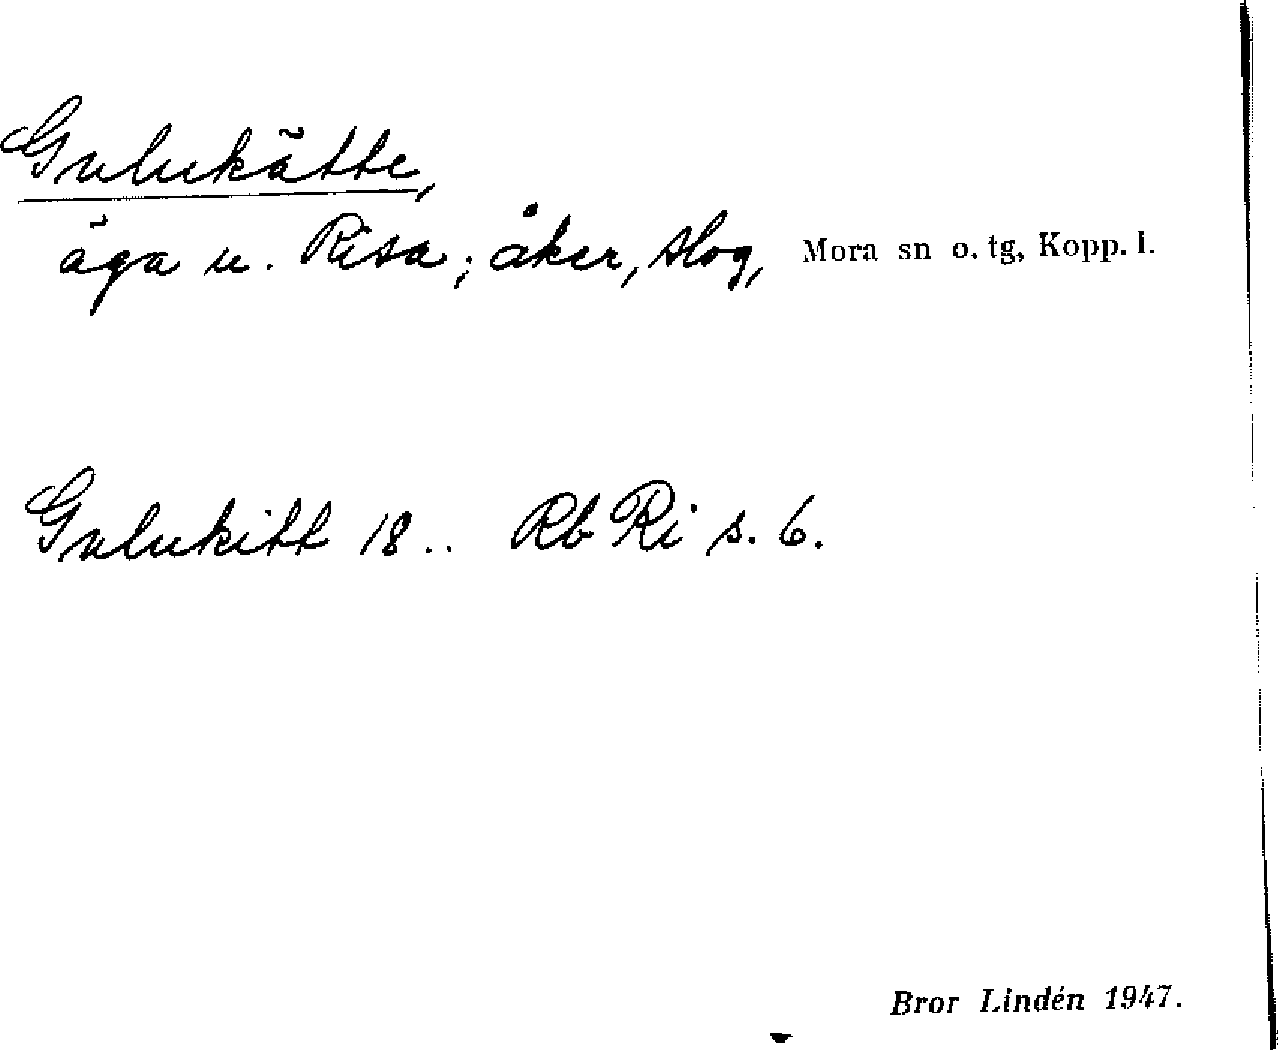 Gulukätte,
äga u. Risa; åker, slog, Mora sn o. tg, Kopp. l.
Gulukitt 18.. Rb Ri s. 6.
Bror Lindén 1947.